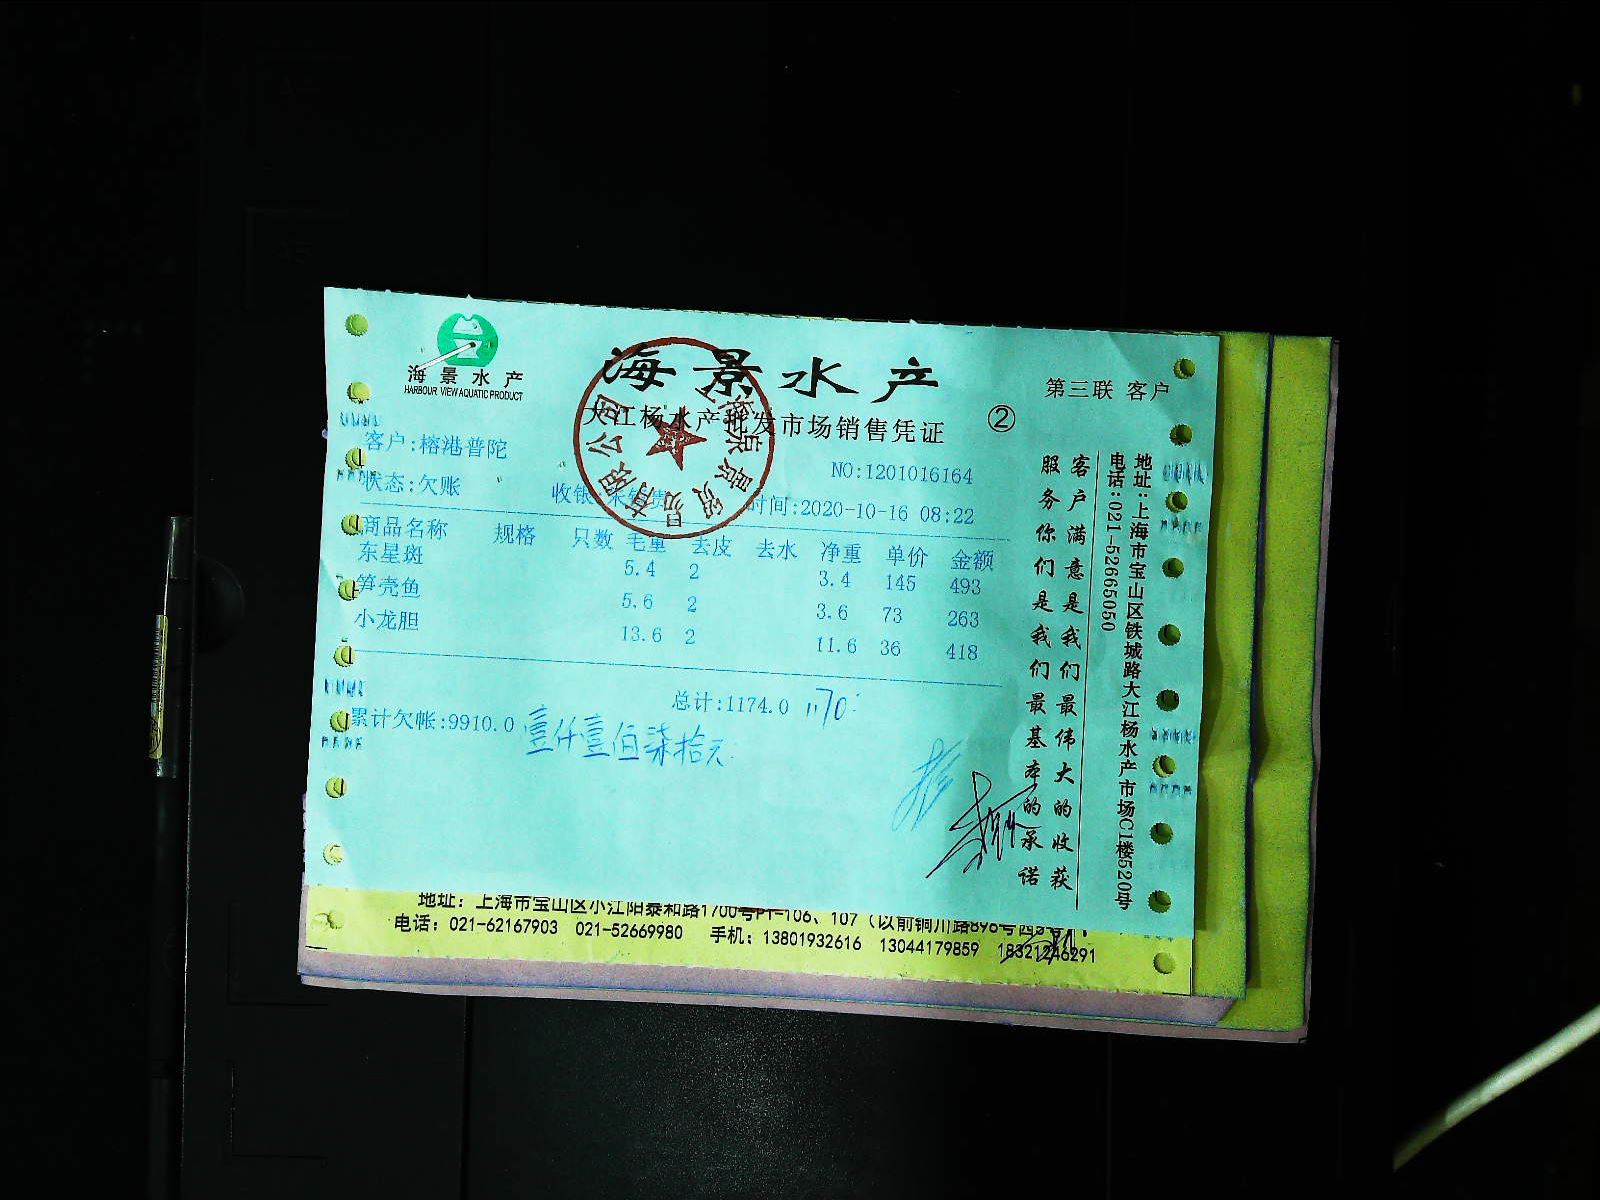 海景水产
HARBOUR VIEW AQUATIC PRODUCT
海景水产
大江杨水产批发市场销售凭证
②
第三联 客户
客户:榕港普陀
NO:1201016164
状态:欠账
收银:
时间:2020-10-16 08:22
商品名称 规格 只数 毛重 去皮 去水 净重 单价 金额
东星斑 5.4 2 3.4 145 493
笋壳鱼 5.6 2 3.6 73 263
小龙胆 13.6 2 11.6 36 418
总计:1174.0 1170.
累计欠帐:9910.0
壹仟壹佰柒拾元
客户满意是我们最伟大的收获
服务你们是我们最基本的承诺
地址:上海市宝山区铁城路大江杨水产市场C1楼520号
电话:021-52665050
地址：上海市宝山区小江阳泰和路1700号P1-106、107（以前铜川路896号西3号
电话：021-62167903 021-52669980 手机：13801932616 13044179859 18321246291